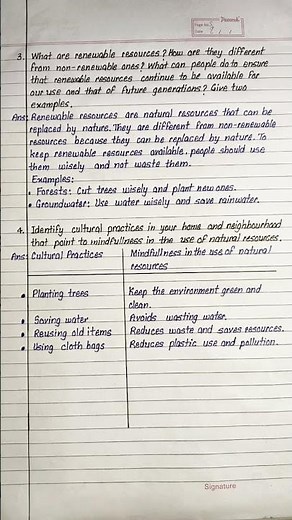 Page No.
Date
3. What are renewable resources? How are they different
from non-renewable ones? What can people do to ensure
that renewable resources continue to be available for
our use and that of future generations? Give two
examples.
Ans: Renewable resources are natural resources that can be
replaced by nature. They are different from non-renewable
resources because they can be replaced by nature. To
keep renewable resources available, people should use
them wisely and not waste them.
Examples:
• Forests: Cut trees wisely and plant new ones.
• Groundwater: Use water wisely and save rainwater.
4. Identify cultural practices in your home and neighbourhood
that point to mindfullness in the use of natural resources.
Ans: Cultural Practices | Mindfullness in the use of natural
resources
• Planting trees | Keep the environment green and
clean.
• Saving water | Avoids wasting water.
• Reusing old items | Reduces waste and saves resources.
• Using cloth bags | Reduces plastic use and pollution.
Signature